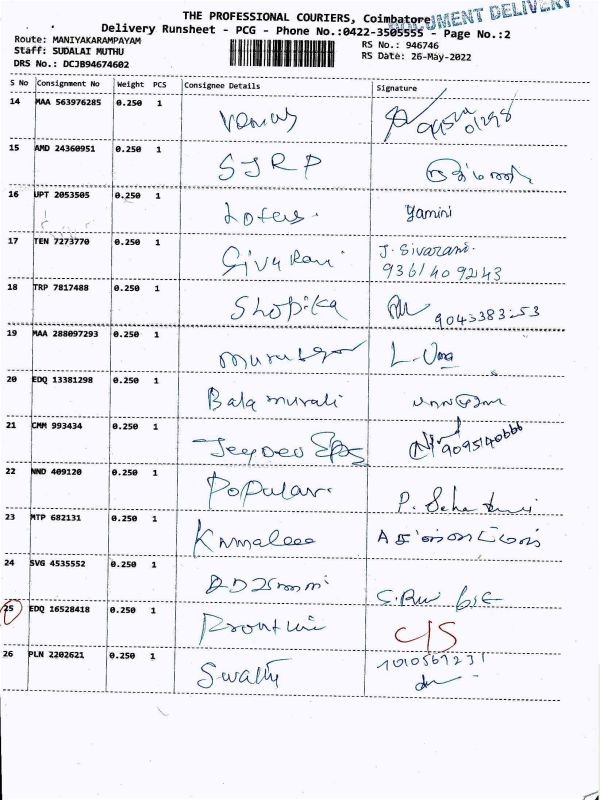 THE PROFESSIONAL COURIERS, Coimbatore
DOCUMENT DELIVERY
Delivery Runsheet - PCG - Phone No.:0422-3505555 - Page No.:2
Route: MANIYAKARAMPAYAM
RS No.: 946746
Staff: SUDALAI MUTHU
RS Date: 26-May-2022
DRS No.: DCJB94674602
S No Consignment No Weight PCS Consignee Details Signature
14 MAA 563976285 0.250 1 Venus
15 AMD 24360951 0.250 1 SJRP
16 UPT 2053505 0.250 1 Lotus. Yamini
17 TEN 7273770 0.250 1 Sivarani J. Sivarani.
9361409243
18 TRP 7817488 0.250 1 Shopika
9043383253
19 MAA 288097293 0.250 1 Murugan L. Uma
20 EDQ 13381298 0.250 1 Bala murali
21 CMM 993434 0.250 1 Jeydev 9095140666
22 NND 409120 0.250 1 Popular.
23 MTP 682131 0.250 1
24 SVG 4535552 0.250 1
25 EDQ 16528418 0.250 1 C/S
26 PLN 2202621 0.250 1 Swathi 1010567231